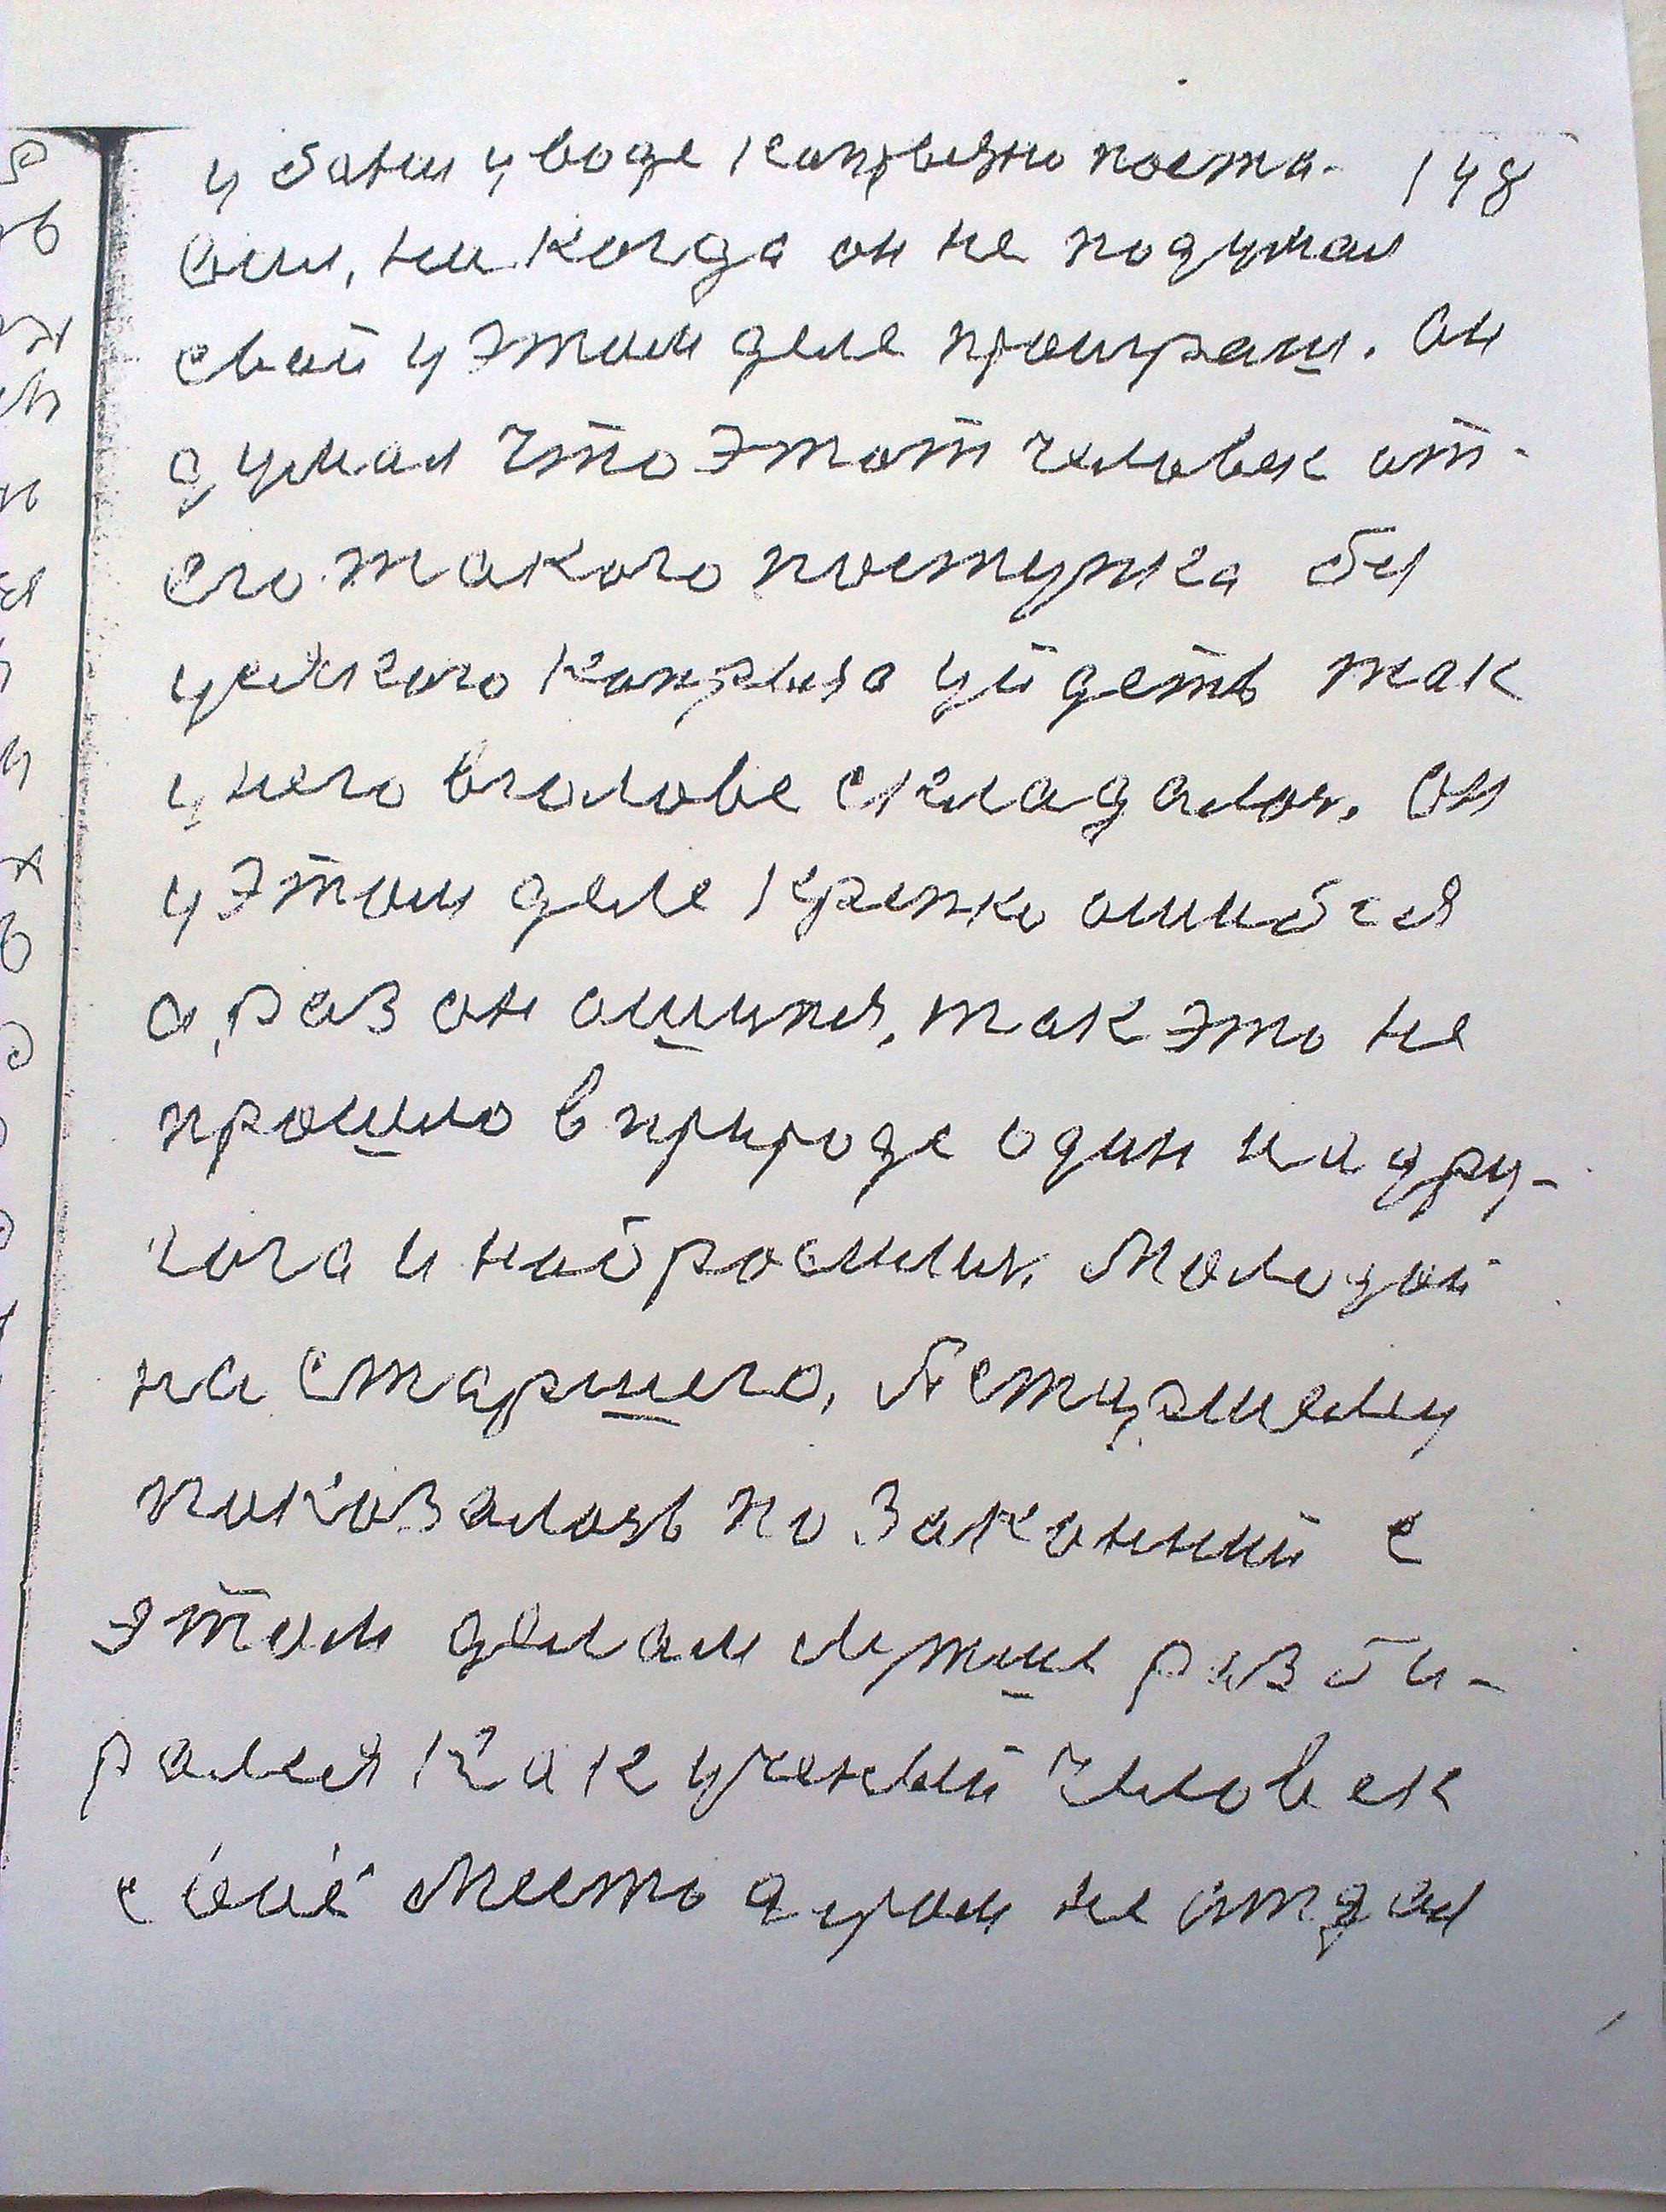 у бани у воде капрызно поста- 148
вил, ни когда он не подумал
свой у этом деле проиграш. Он
думал что этот человек от
его такого поступка бы
ужского капрыза уйдеть так
у него вголове складалось. Он
у этом деле крепко ошибся
а, раз он ошипся, так это не
прошло в природе один на дру-
гога и набросились. Молодой
на старшего, Астаршему
показалось по законний с
этом делам лутше разби-
рался как ученый человек
своё место даром не отдал